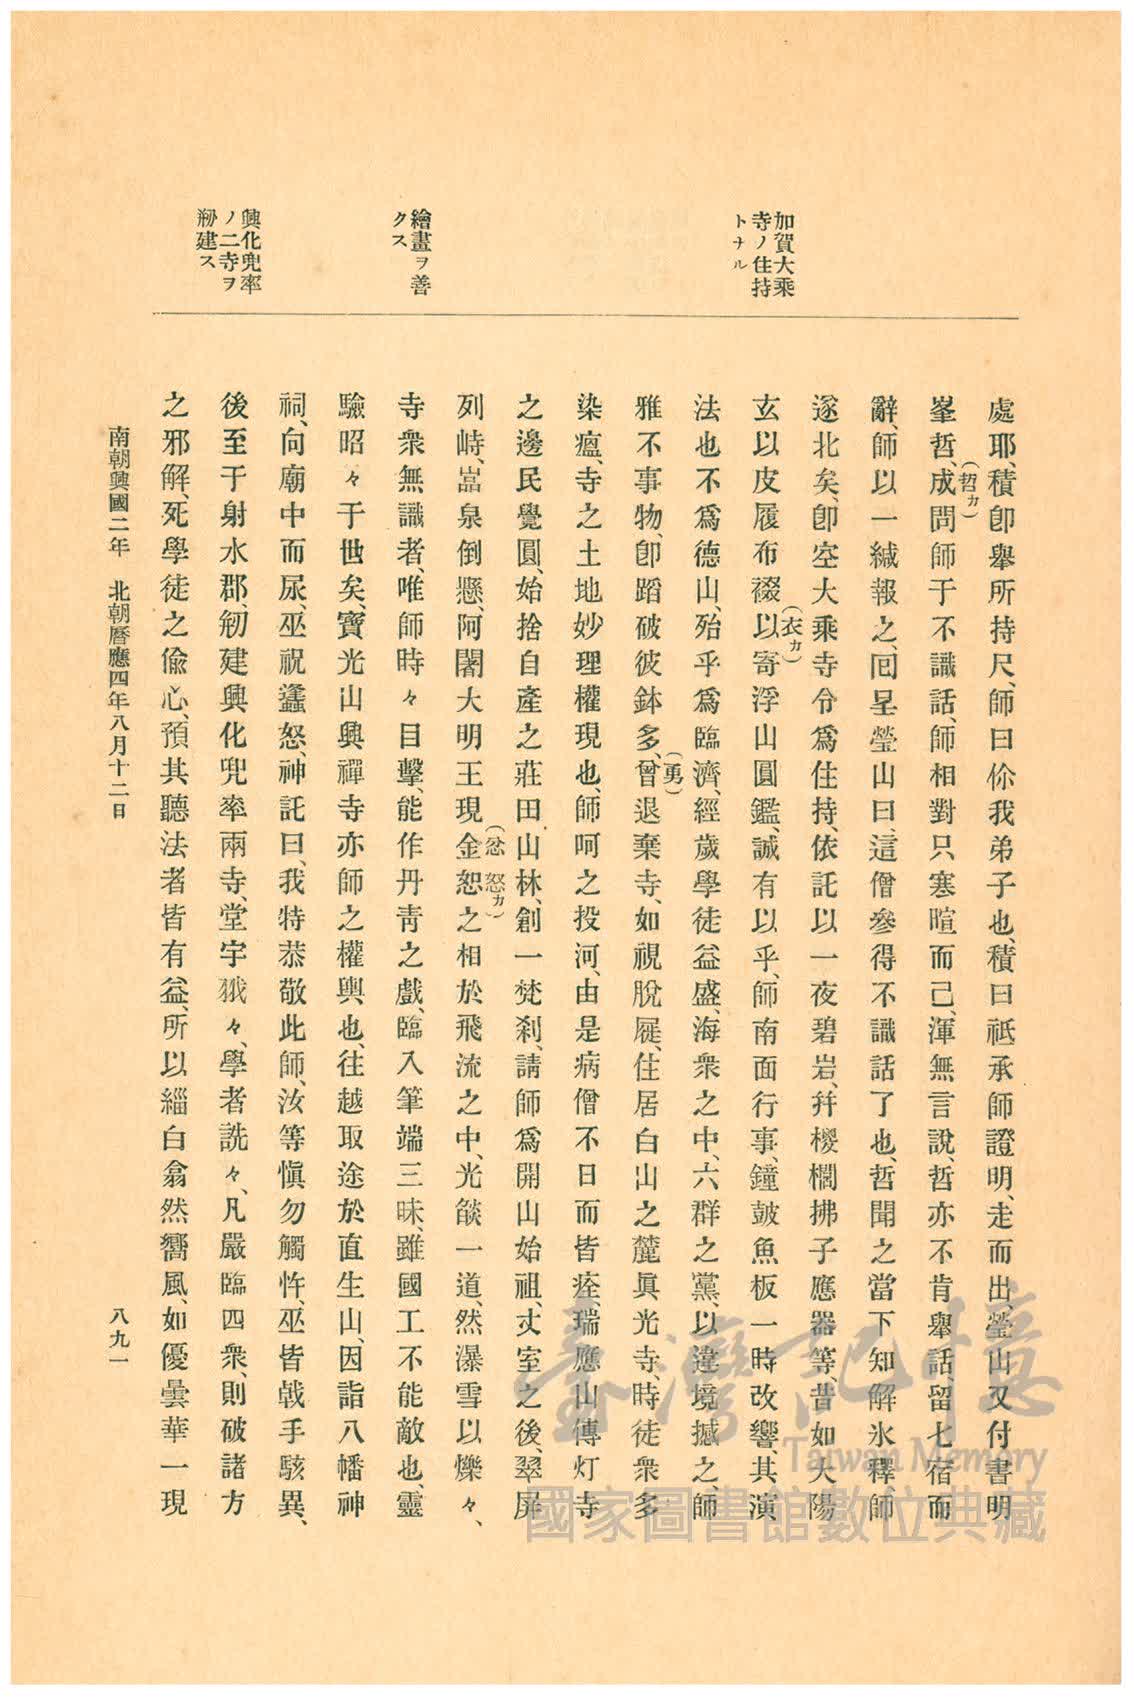 加賀大乘
寺ノ住持
トナル
繪畫ヲ善
クス
興化兜率
ノ二寺ヲ
剙建ス
處耶、積卽擧所持尺、師曰伱我弟子也、積曰祗承師證明、走而出、瑩山又付書明
峯哲、成問師于不識話、師相對只寒暄而已、渾無言說、哲亦不肯擧話、留七宿而
(哲カ)
辭、師以一緘報之、囘呈瑩山曰、這僧參得不識話了也、哲聞之當下知解氷釋、師
遂北矣、卽空大乘寺令爲住持、依託以一夜碧岩、幷椶櫚拂子應器等、昔如大陽
玄以皮履布裰以寄浮山圓鑑、誠有以乎、師南面行事、鐘皷魚板一時改響、其演
(衣カ)
法也不爲德山、殆乎爲臨濟、經歲學徒益盛、海衆之中、六群之黨、以違境撼之、師
雅不事物、卽蹈破彼鉢多、曾退棄寺、如視脫屣、住居白山之麓眞光寺、時徒衆多
(勇)
染瘟、寺之土地妙理權現也、師呵之投河、由是病僧不日而皆痊、瑞應山傳灯寺
之邊民覺圓、始捨自產之莊田山林、創一梵刹、請師爲開山始祖、丈室之後、翠屏
列峙、嵓泉倒懸、阿闍大明王現金恕之相於飛流之中、光燄一道、然瀑雪以爍々、
(忿 怒カ)
寺衆無識者、唯師時々目擊、能作丹靑之戲、臨入筆端三昧、雖國工不能敵也、靈
驗昭々于世矣、寶光山興禪寺亦師之權輿也、往越取途於直生山、因詣八幡神
祠、向廟中而尿、巫祝蠭怒、神託曰、我特恭敬此師、汝等愼勿觸忤、巫皆戟手駭異、
後至于射水郡、剏建興化兜率兩寺、堂宇峩々、學者詵々、凡嚴臨四衆、則破諸方
之邪解、死學徒之偸心、預其聽法者皆有益、所以緇白翕然嚮風、如優曇華一現
南朝興國二年　北朝曆應四年八月十二日
八九一
臺灣記憶
Taiwan Memory
國家圖書館數位典藏